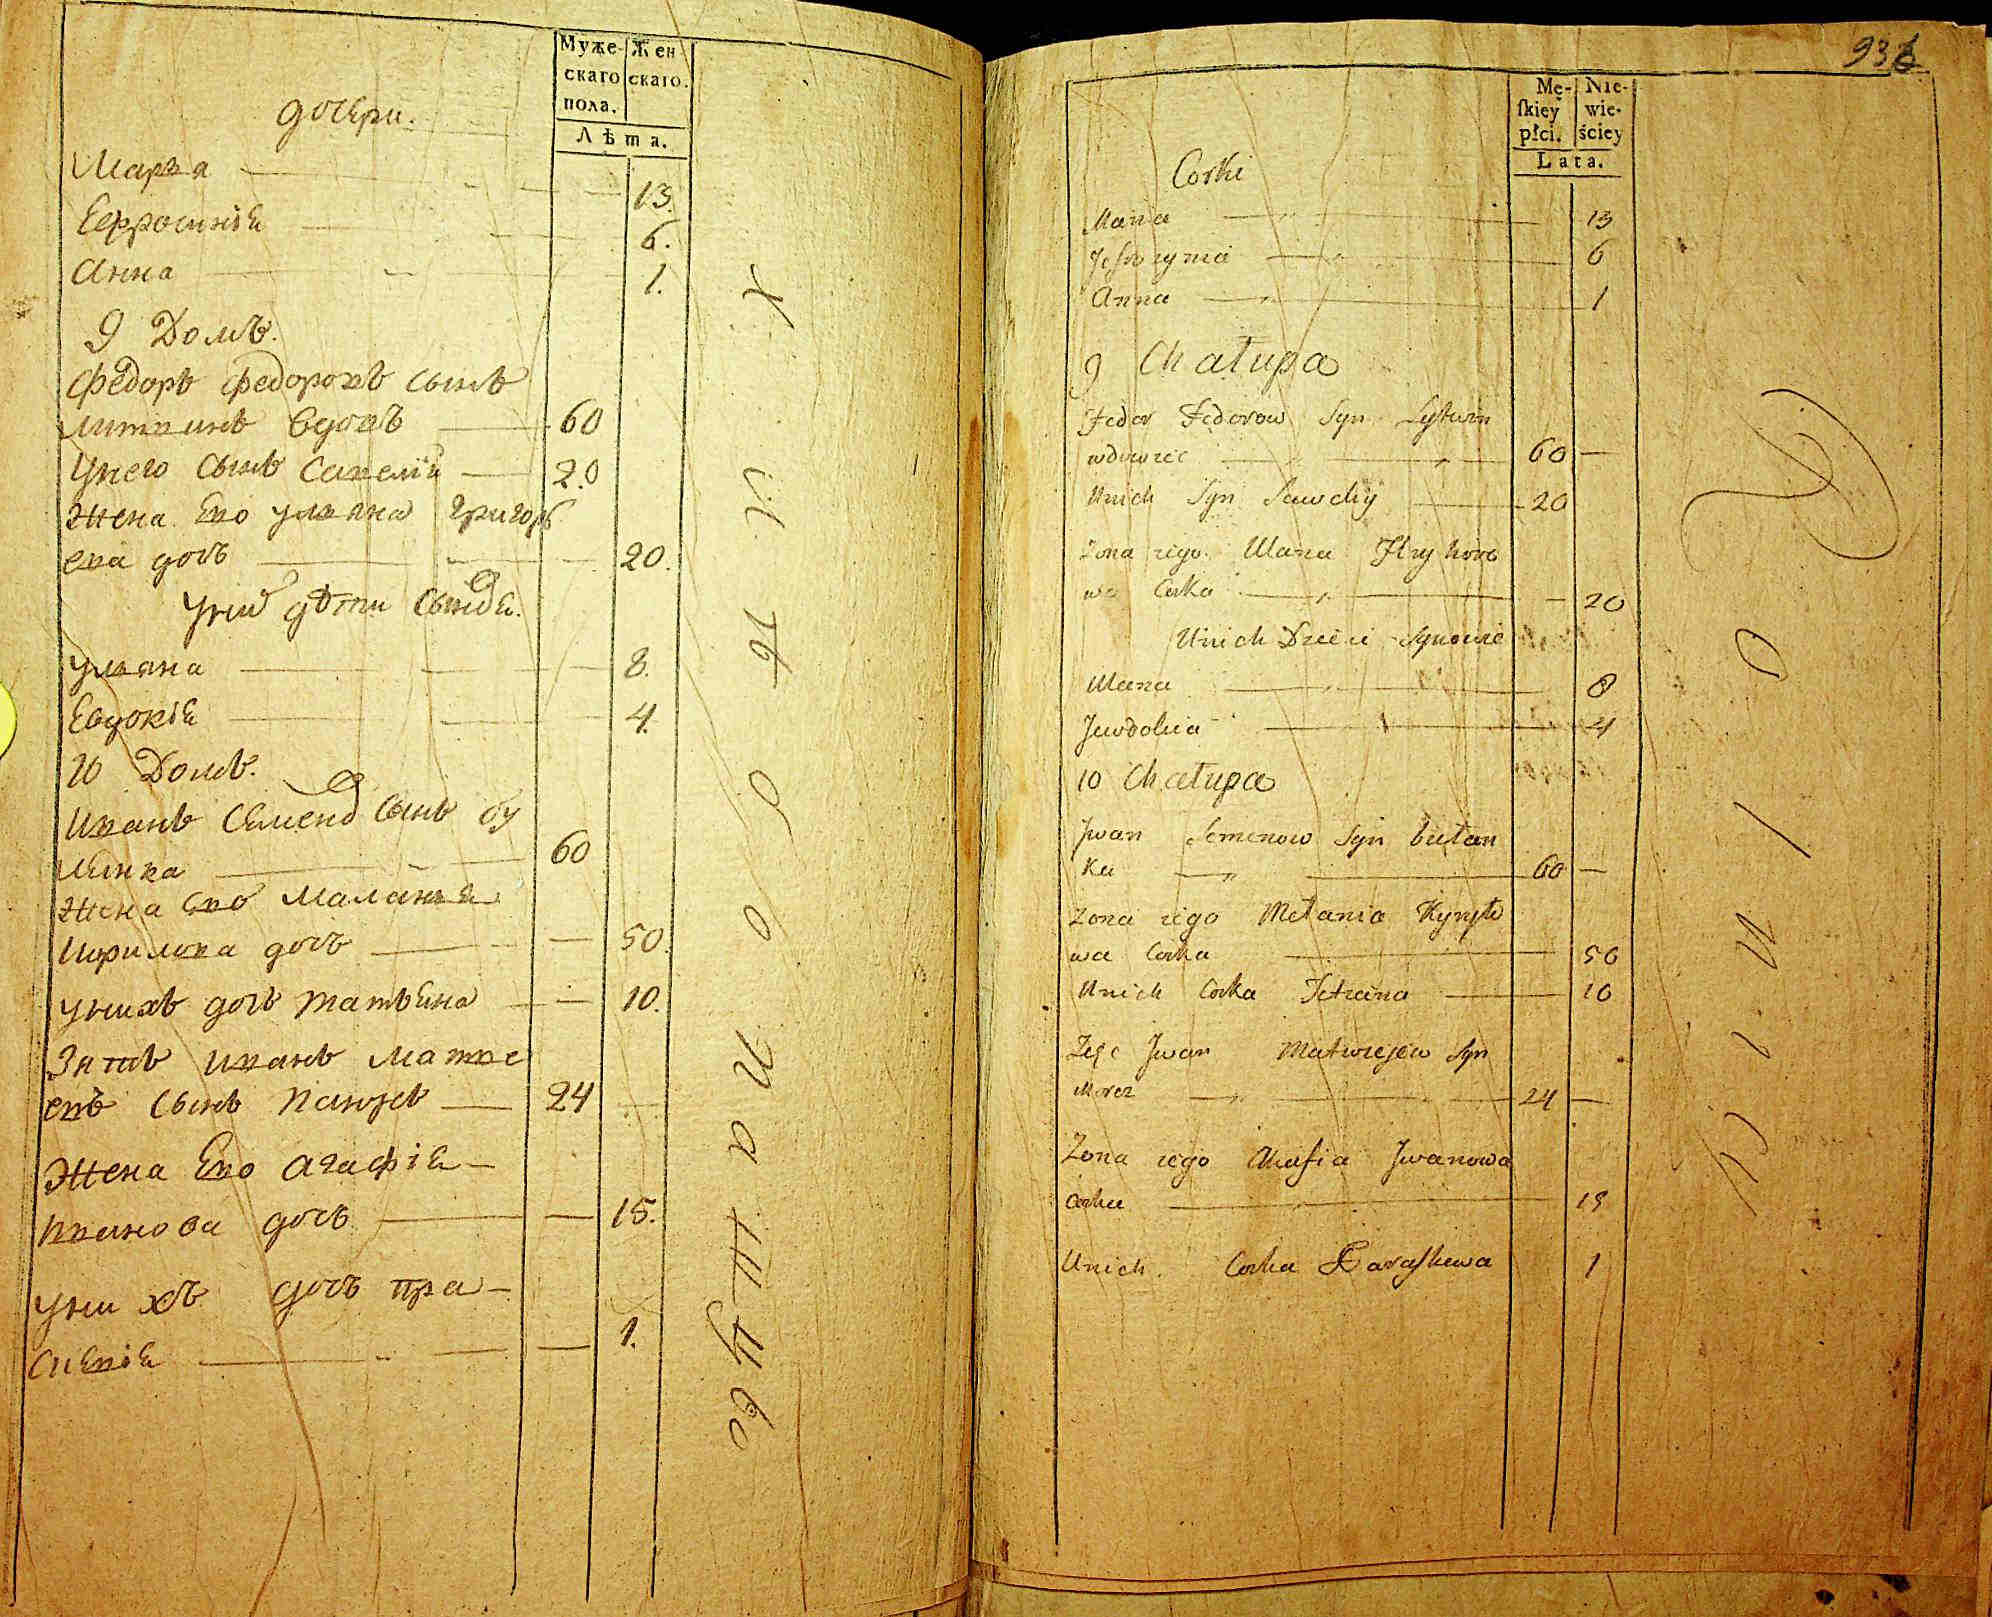 Муже-
скаго
пола.
Жен
скаго.
Лѣта.
дочери.
Марья 13.
Ефросинія 6.
Анна 1.
9 Домъ.
Федоръ Федоровъ сынъ
литвинъ вдовъ 60
Унего сынъ Савелій 20
Жена Ево ульяна григорь
ева дочь 20.
Уних дѣти сынов.
ульяна 8.
Евдокія 4.
10 Домъ.
Иванъ Семенов сынъ бу
Жена Ево Маланья
Кирилова дочь 50.
унихъ дочь татьяна 10.
Зять иванъ матве
евъ сынъ 24
Жена Ево агафія
иванова дочь 15.
унихъ дочь пра-
скевія 1.
936
Mę-
ſkiey
płci.
Nie-
wie-
ściey
Lata.
Corki
Maria 13
Jefrozynia 6
Anna 1
9 Chałupa
Fedor Fedorow Syn Lytwin
wdowiec 60
Unich Syn Saweliy 20
Zona iego Ulana Hryhoro
wa Corka 20
Unich Dzieci Synowie
Ulana 8
Jewdokia 4
10 Chałupa
Jwan Semenow Syn bułan
ka 60
Zona iego Mełania Kyryło
wa Corka 50
Unich Corka Tetiana 10
Zięć Jwan Matwiejew Syn
Moroz 24
Zona iego Ahafia Jwanowa
Corka 15
Unich Corka Paraskewa 1